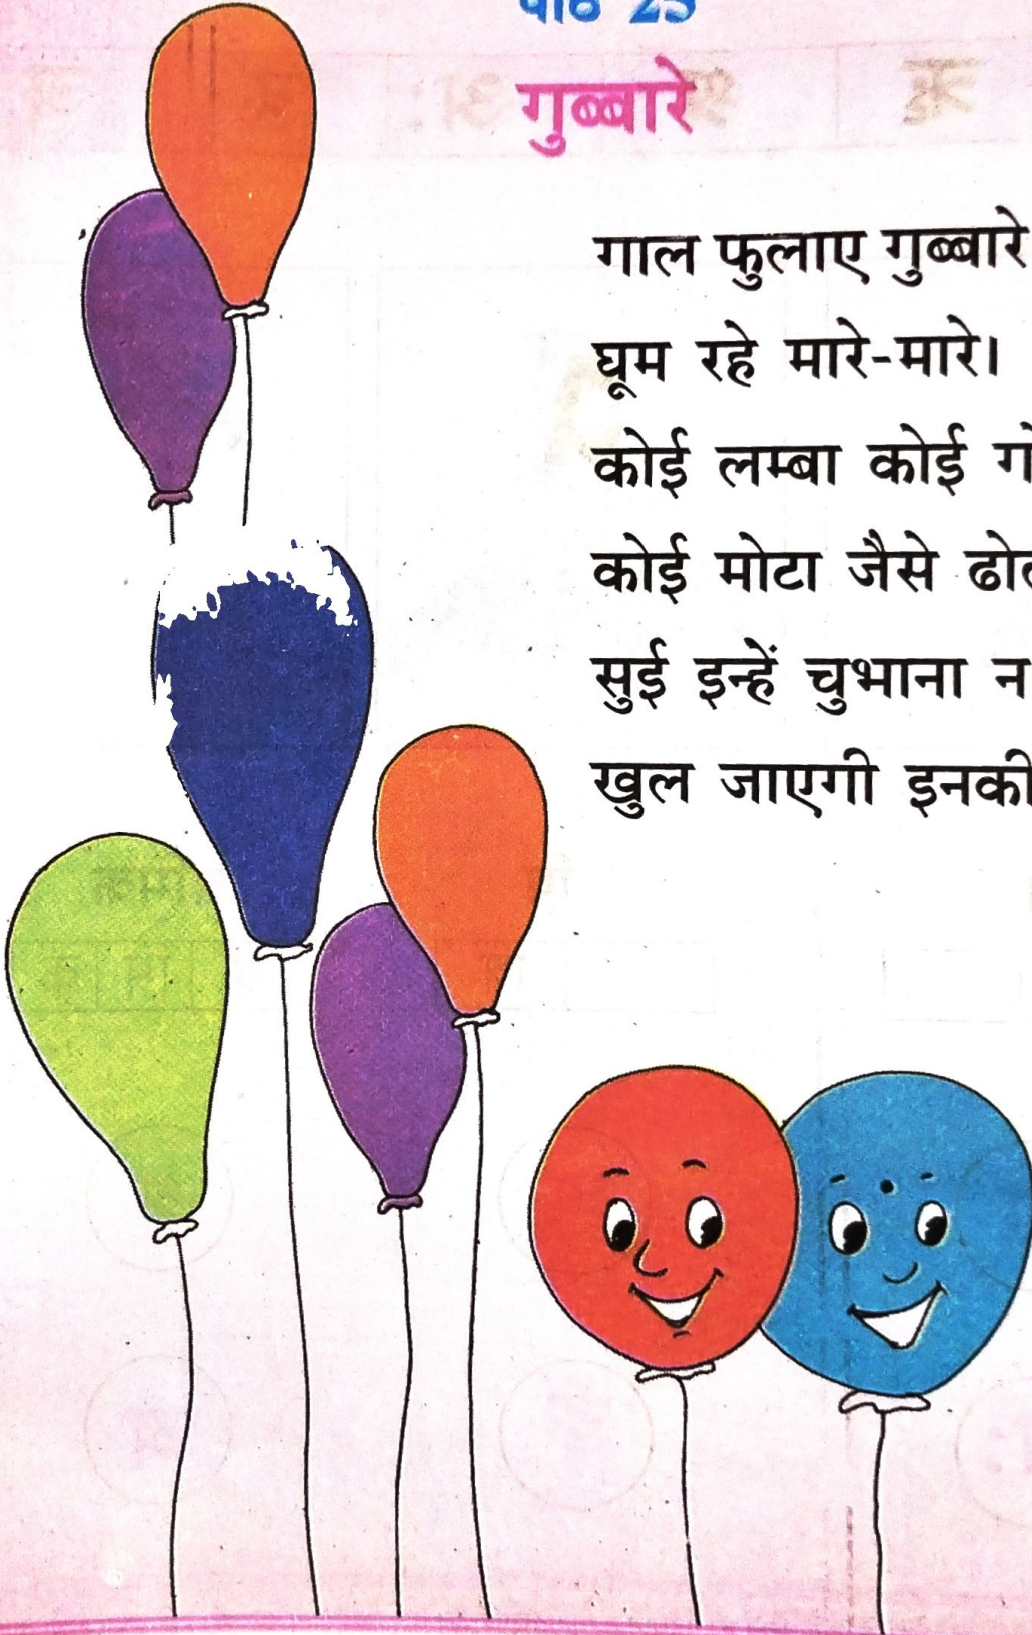 पाठ 25
गुब्बारे
गाल फुलाए गुब्बारे
घूम रहे मारे-मारे।
कोई लम्बा कोई
कोई मोटा जैसे
सुई इन्हें चुभाना न
खुल जाएगी इनकी